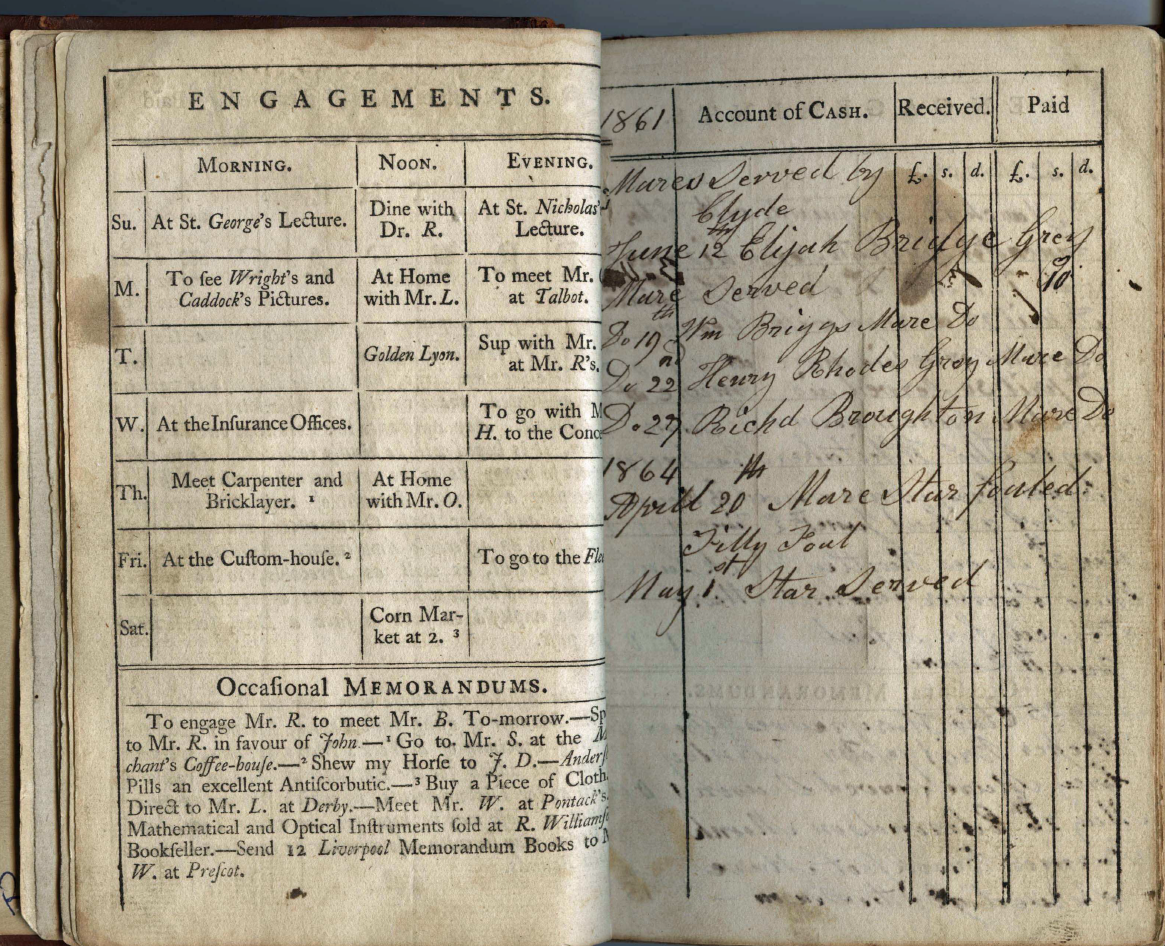 ENGAGEMENTS.
MORNING. NOON. EVENING.
Su. At St. George's Lecture. Dine with Dr. R. At St. Nicholas' Lecture.
M. To ſee Wright's and Caddock's Pictures. At Home with Mr. L. To meet Mr. at Talbot.
T. Golden Lyon. Sup with Mr. at Mr. R's.
W. At the Inſurance Offices. To go with M H. to the Conc
Th. Meet Carpenter and Bricklayer. ¹ At Home with Mr. O.
Fri. At the Cuſtom-houſe. ² To go to the Fle
Sat. Corn Mar-
ket at 2. ³
Occaſional MEMORANDUMS.
To engage Mr. R. to meet Mr. B. To-morrow.—Sp
to Mr. R. in favour of John.—¹ Go to Mr. S. at the M
chant's Coffee-houſe.—² Shew my Horſe to J. D.—Anderſ
Pills an excellent Antiſcorbutic.—³ Buy a Piece of Cloth.
Direct to Mr. L. at Derby.—Meet Mr. W. at Pontack's.
Mathematical and Optical Inſtruments ſold at R. Williamſo
Bookſeller.—Send 12 Liverpool Memorandum Books to
W. at Preſcot.
1861 Account of CASH. Received. Paid
£. s. d. £. s. d.
Mares Served by
Clyde
June 12th Elijah Bridge Grey
Mare Served 10
Do 19th Wm Briggs Mare Do
Do 22nd Henry Rhodes Grey Mare Do
Do 27 Richd Broughton Mare Do
1864
April 20th Mare Star foaled
Filly Foal
May 1st Star Served